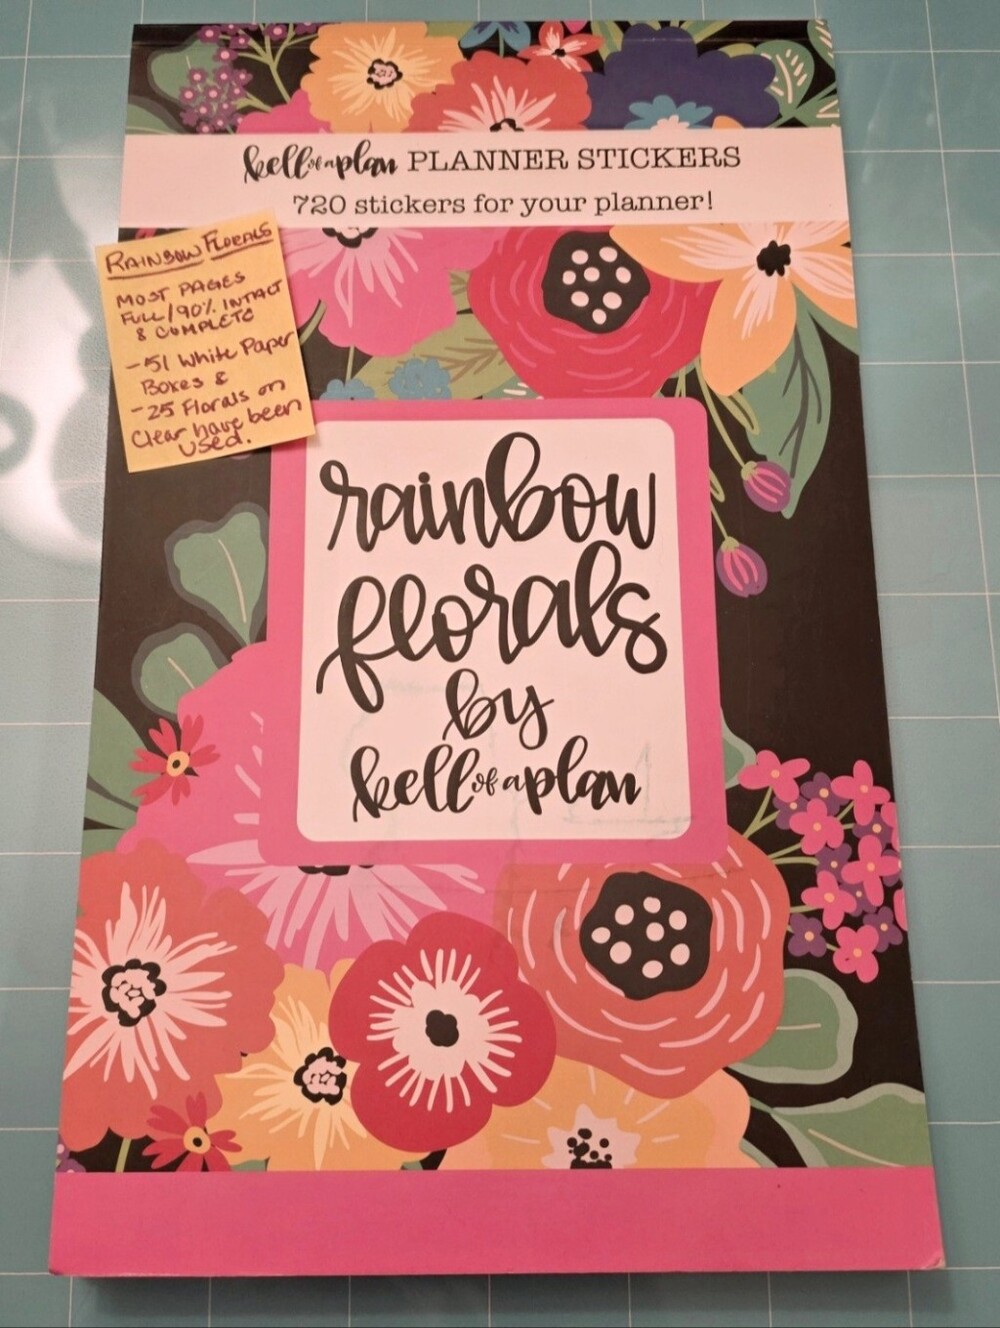 bell of a plan PLANNER STICKERS
720 stickers for your planner!
RAINBOW FLORALS
MOST PAGES
FULL/90% INTACT
& COMPLETE
-51 White Paper
Boxes &
-25 Florals on
Clear have been
used.
rainbow
florals
by
bell of a plan